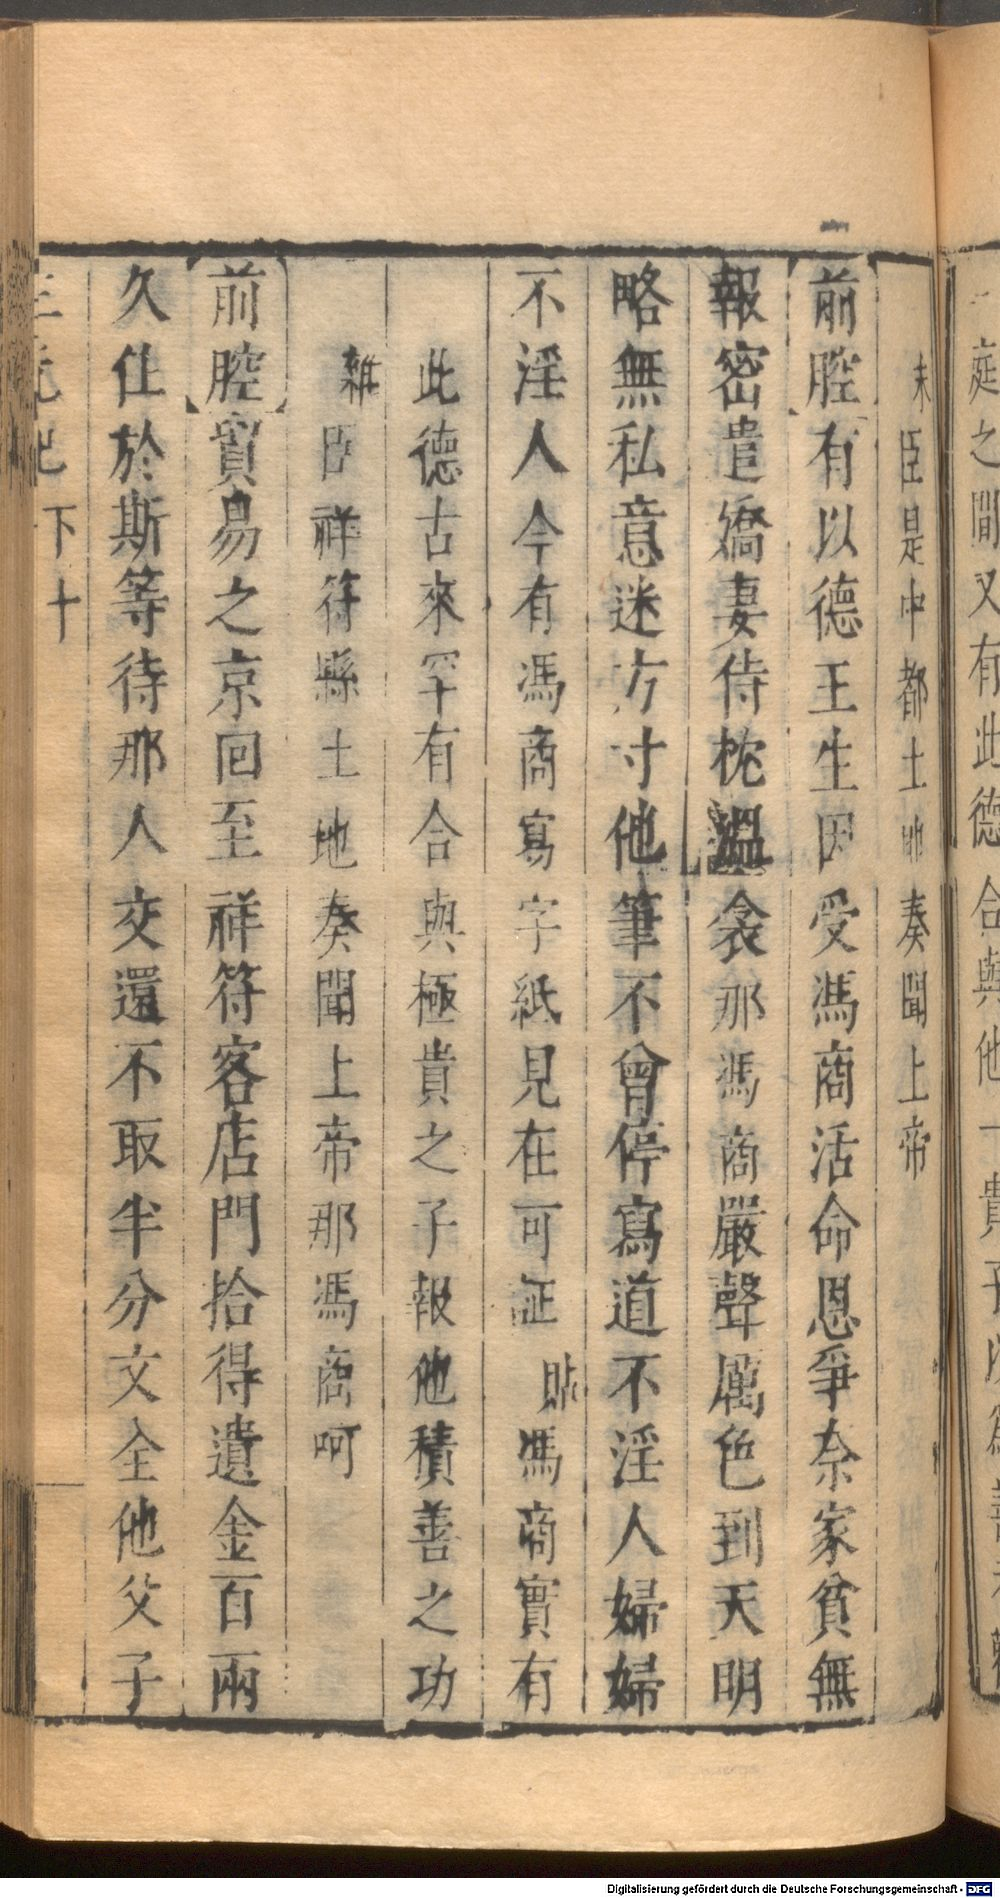 庭之間又有此德合與他一貴子
末 臣是中都土地奏聞上帝
前腔 有以德王生因受馮商活命恩爭奈家貧無
報密遣嬌妻侍枕溫衾那馮商嚴聲厲色到天明
略無私意迷方寸他筆不曾停寫道不淫人婦婦
不淫人今有馮商寫字紙見在可証 貼 馮商實有
此德古來罕有合與極貴之子報他積善之功
雜 臣祥符縣土地奏聞上帝那馮商呵
前腔 貿易之京回至祥符客店門拾得遺金百兩
久住於斯等待那人交還不取半分文全他父子
三元記 下 十
Digitalisierung gefördert durch die Deutsche Forschungsgemeinschaft - DFG